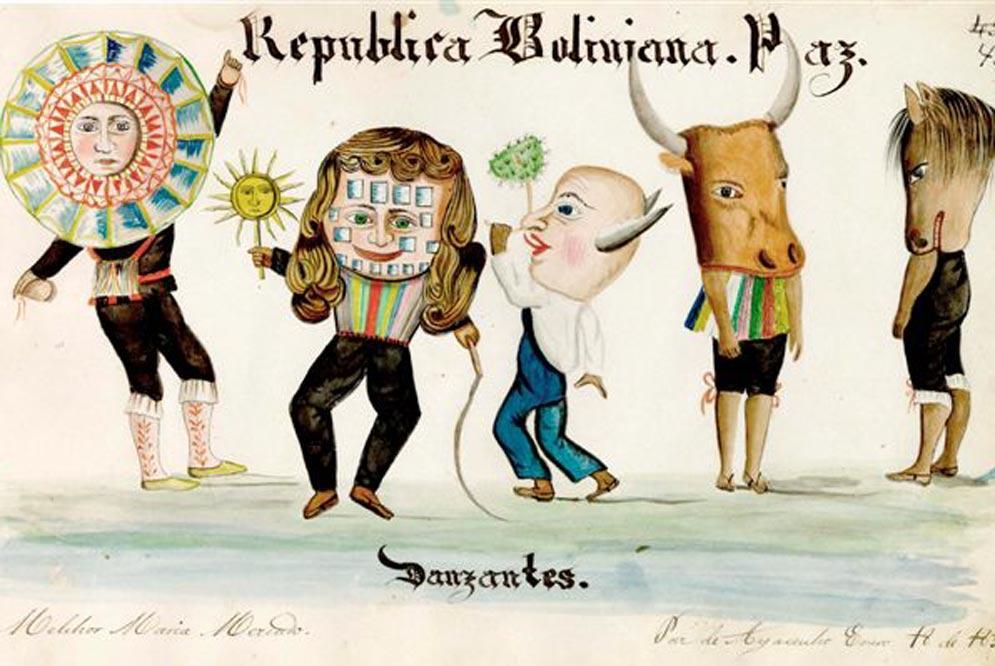 Republica Boliviana. Paz.
Danzantes.
Melchor Maria Mercado.
Paz de Ayacucho Enero de